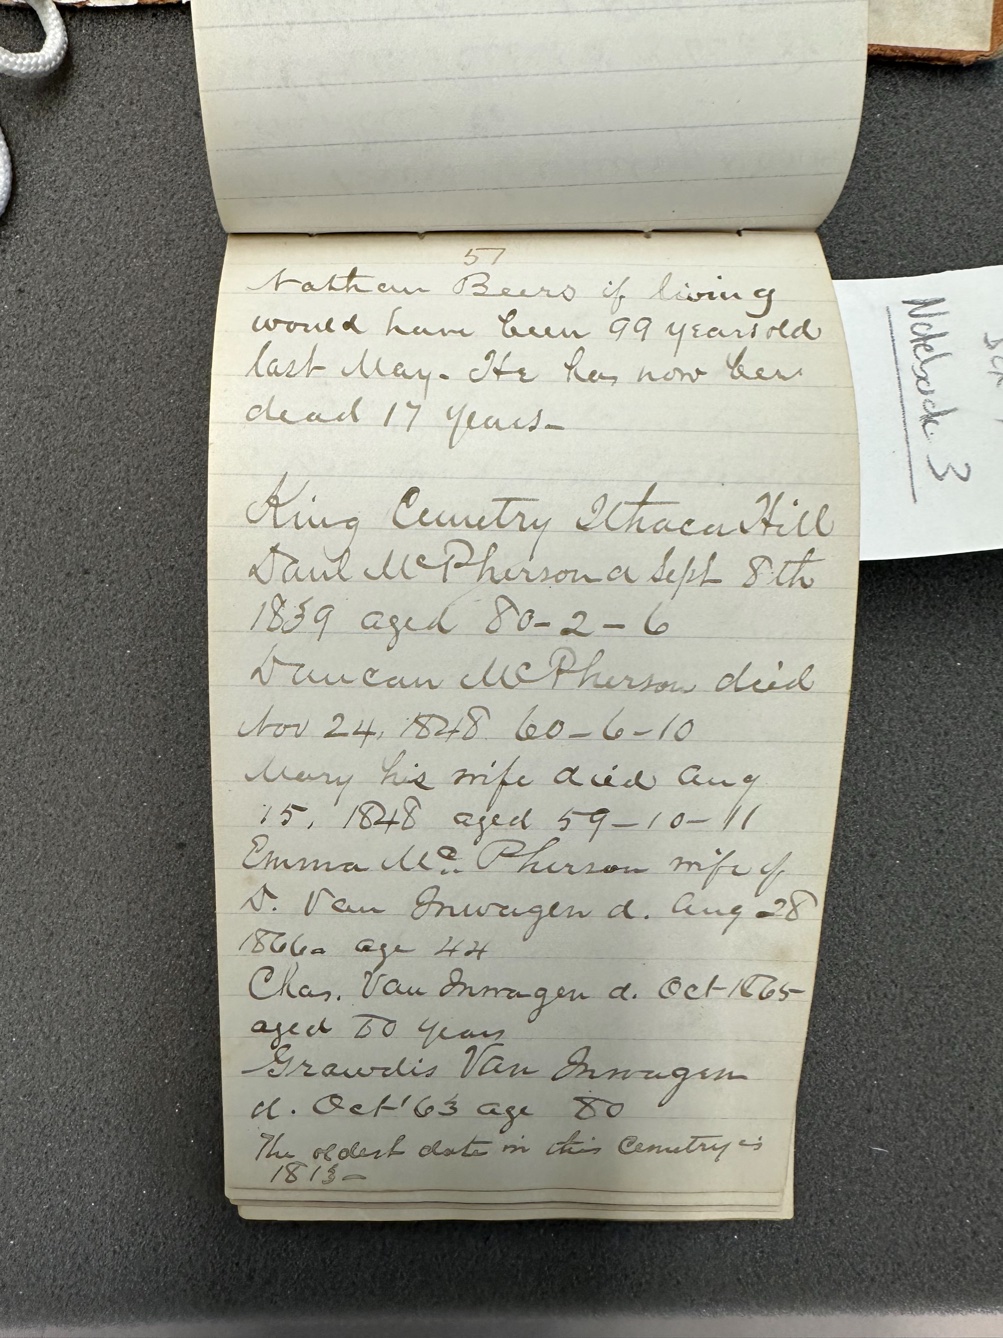 57
Nathan Beers if living
would have been 99 years old
last May. He has now been
dead 17 years—
King Cemetry Ithaca Hill
Danl McPherson d Sept 8th
1839 aged 80-2-6
Duncan McPherson died
Nov 24, 1848 60-6-10
Mary his wife died Aug
15, 1848 aged 59-10-11
Emma Mc Pherson wife of
D. Van Inwagen d. Aug 28
1866 age 44
Chas. Van Inwagen d. Oct 1865
aged 50 years
Van Inwagen
d. Oct '63 age 80
The oldest date in this Cemetry is
1813—
Notebook 3